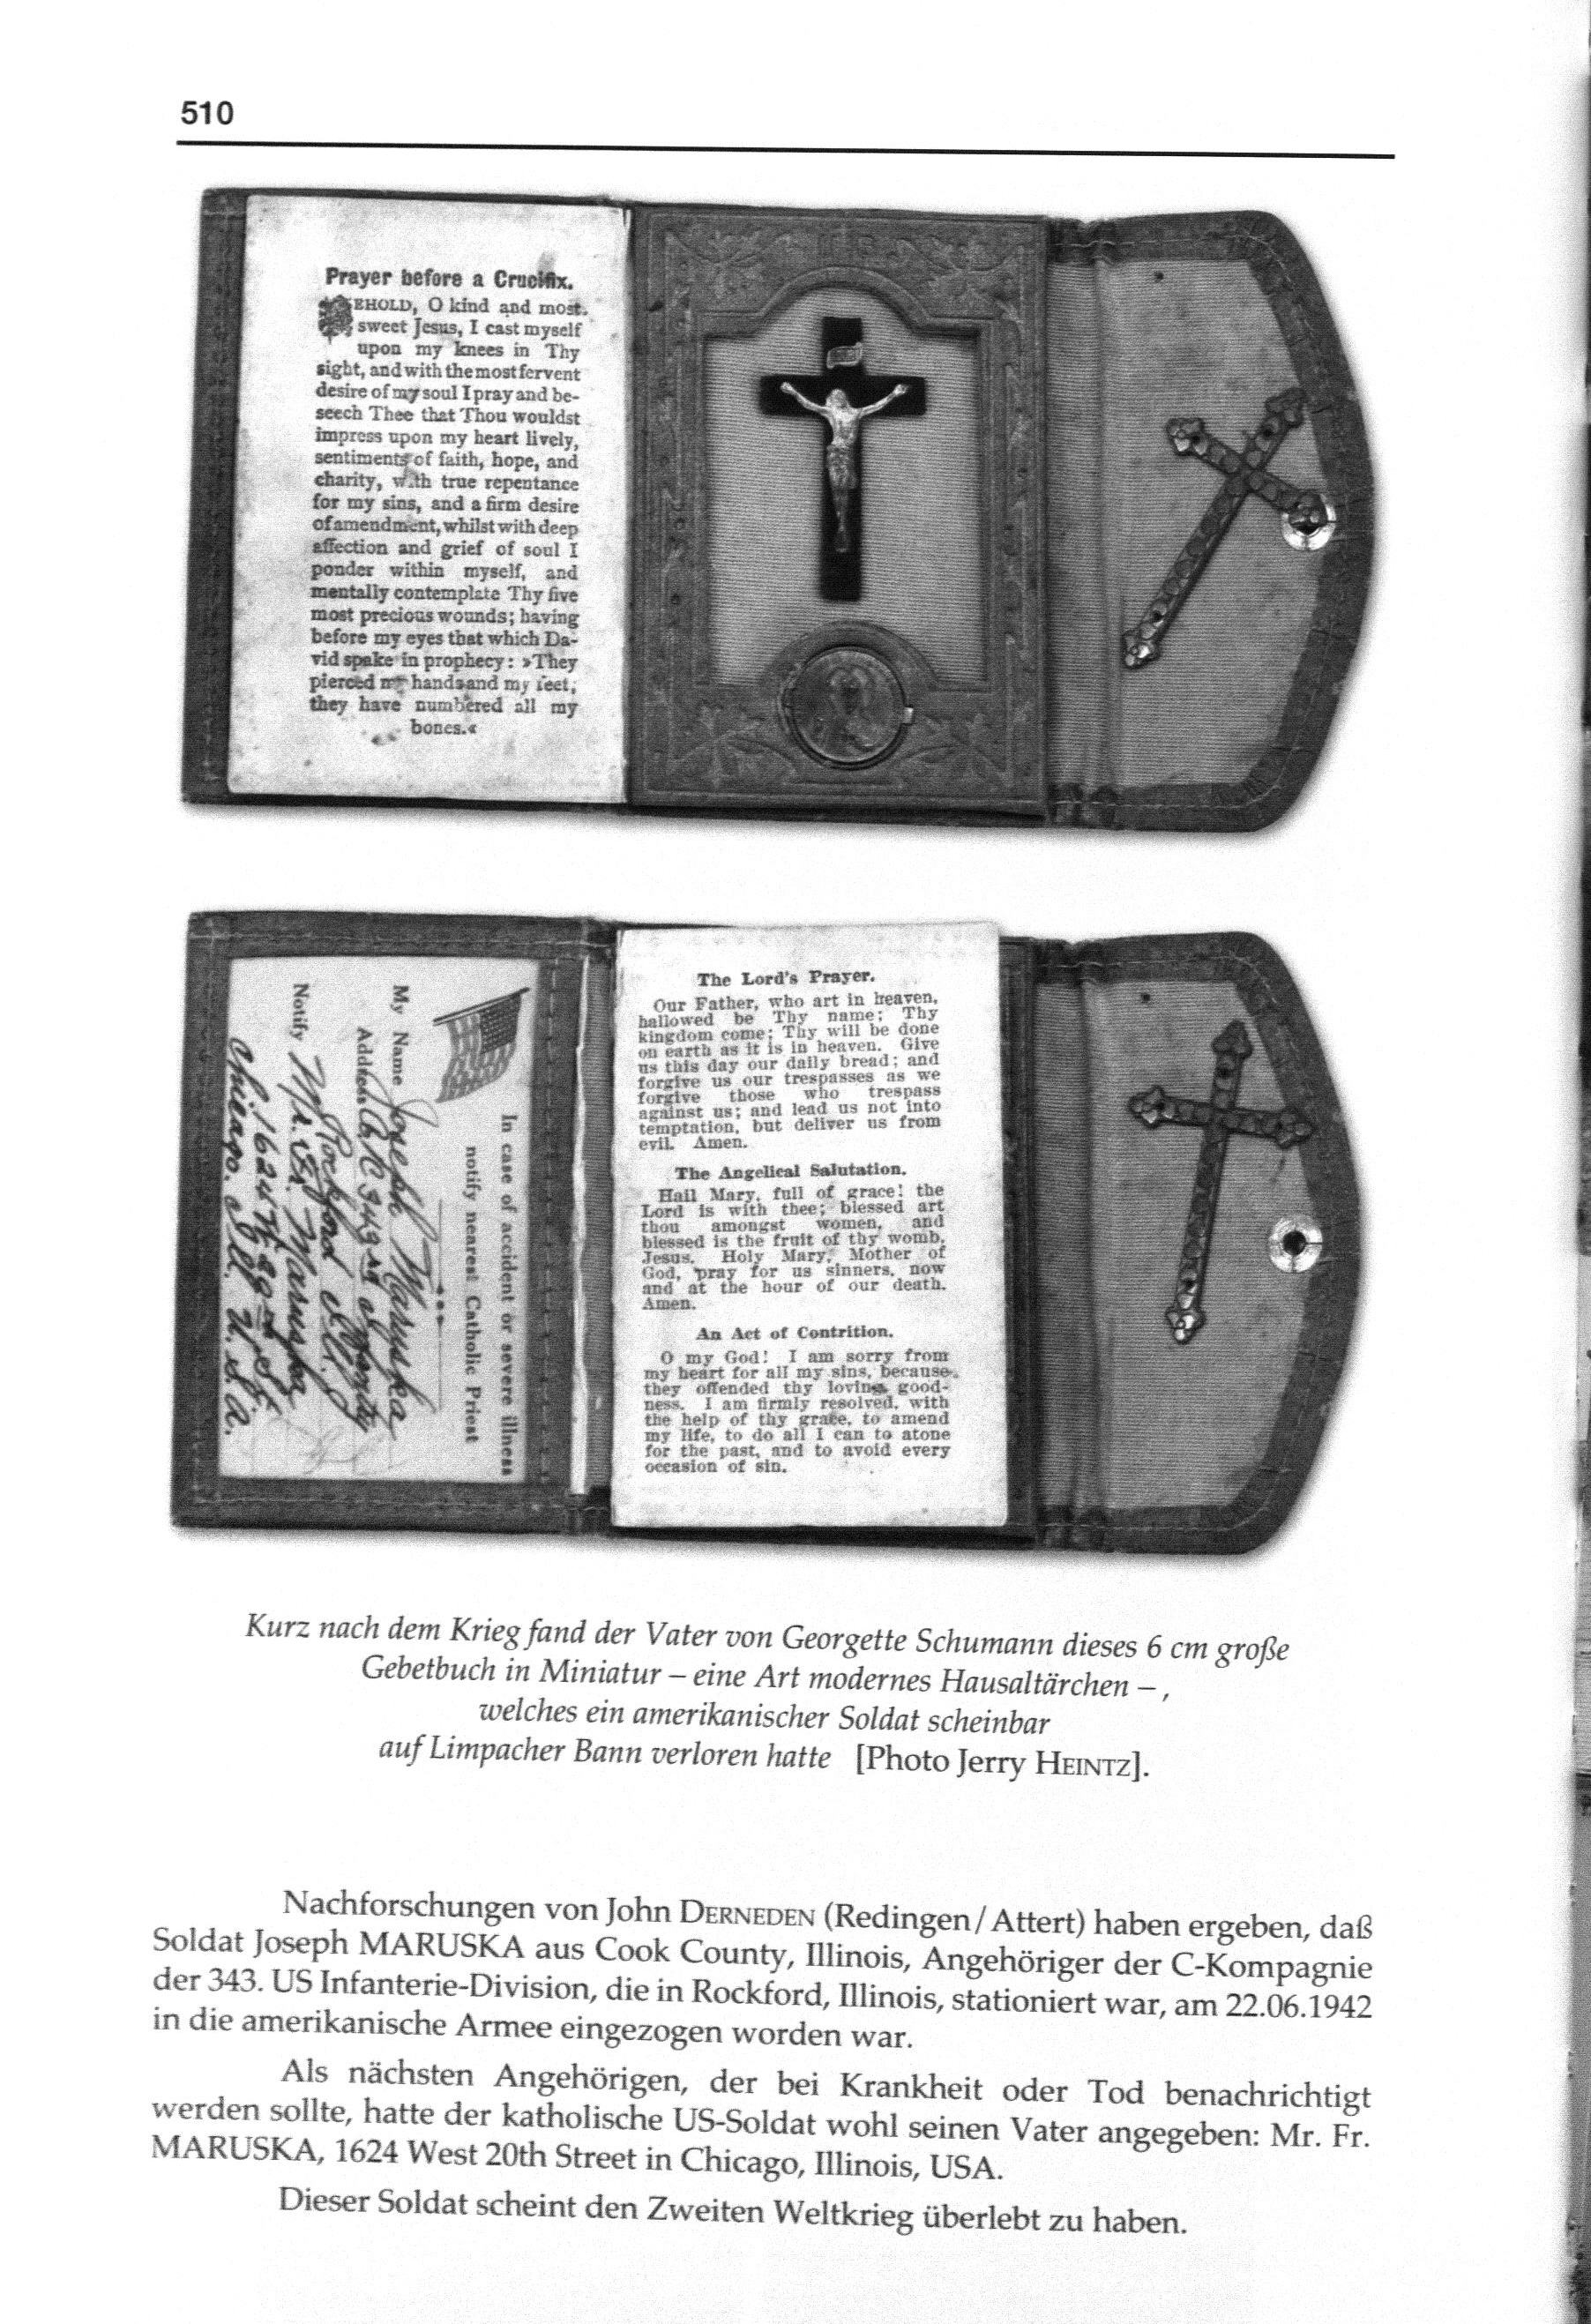 510
Prayer before a Crucifix.
BEHOLD, O kind and most
sweet Jesus, I cast myself
upon my knees in Thy
sight, and with the most fervent
desire of my soul I pray and be-
seech Thee that Thou wouldst
impress upon my heart lively,
sentiments of faith, hope, and
charity, with true repentance
for my sins, and a firm desire
of amendment, whilst with deep
affection and grief of soul I
ponder within myself, and
mentally contemplate Thy five
most precious wounds; having
before my eyes that which Da-
vid spake in prophecy: »They
pierced my hands and my feet,
they have numbered all my
bones.«
In case of accident or severe illness
notify nearest Catholic Priest
My Name Joseph Maruska
Address Co. C 343rd Infantry
Rockford Ill.
Notify Mr. Fr. Maruska
1624 W. 20th St.
Chicago. Ill. U.S.A.
The Lord's Prayer.
Our Father, who art in heaven,
hallowed be Thy name; Thy
kingdom come; Thy will be done
on earth as it is in heaven. Give
us this day our daily bread; and
forgive us our trespasses as we
forgive those who trespass
against us; and lead us not into
temptation, but deliver us from
evil. Amen.
The Angelical Salutation.
Hail Mary, full of grace! the
Lord is with thee; blessed art
thou amongst women, and
blessed is the fruit of thy womb,
Jesus. Holy Mary, Mother of
God, pray for us sinners, now
and at the hour of our death.
Amen.
An Act of Contrition.
O my God! I am sorry from
my heart for all my sins, because
they offended thy loving good-
ness. I am firmly resolved, with
the help of thy grace, to amend
my life, to do all I can to atone
for the past, and to avoid every
occasion of sin.
Kurz nach dem Krieg fand der Vater von Georgette Schumann dieses 6 cm große
Gebetbuch in Miniatur – eine Art modernes Hausaltärchen – ,
welches ein amerikanischer Soldat scheinbar
auf Limpacher Bann verloren hatte [Photo Jerry HEINTZ].
Nachforschungen von John DERNEDEN (Redingen/Attert) haben ergeben, daß
Soldat Joseph MARUSKA aus Cook County, Illinois, Angehöriger der C-Kompagnie
der 343. US Infanterie-Division, die in Rockford, Illinois, stationiert war, am 22.06.1942
in die amerikanische Armee eingezogen worden war.
Als nächsten Angehörigen, der bei Krankheit oder Tod benachrichtigt
werden sollte, hatte der katholische US-Soldat wohl seinen Vater angegeben: Mr. Fr.
MARUSKA, 1624 West 20th Street in Chicago, Illinois, USA.
Dieser Soldat scheint den Zweiten Weltkrieg überlebt zu haben.